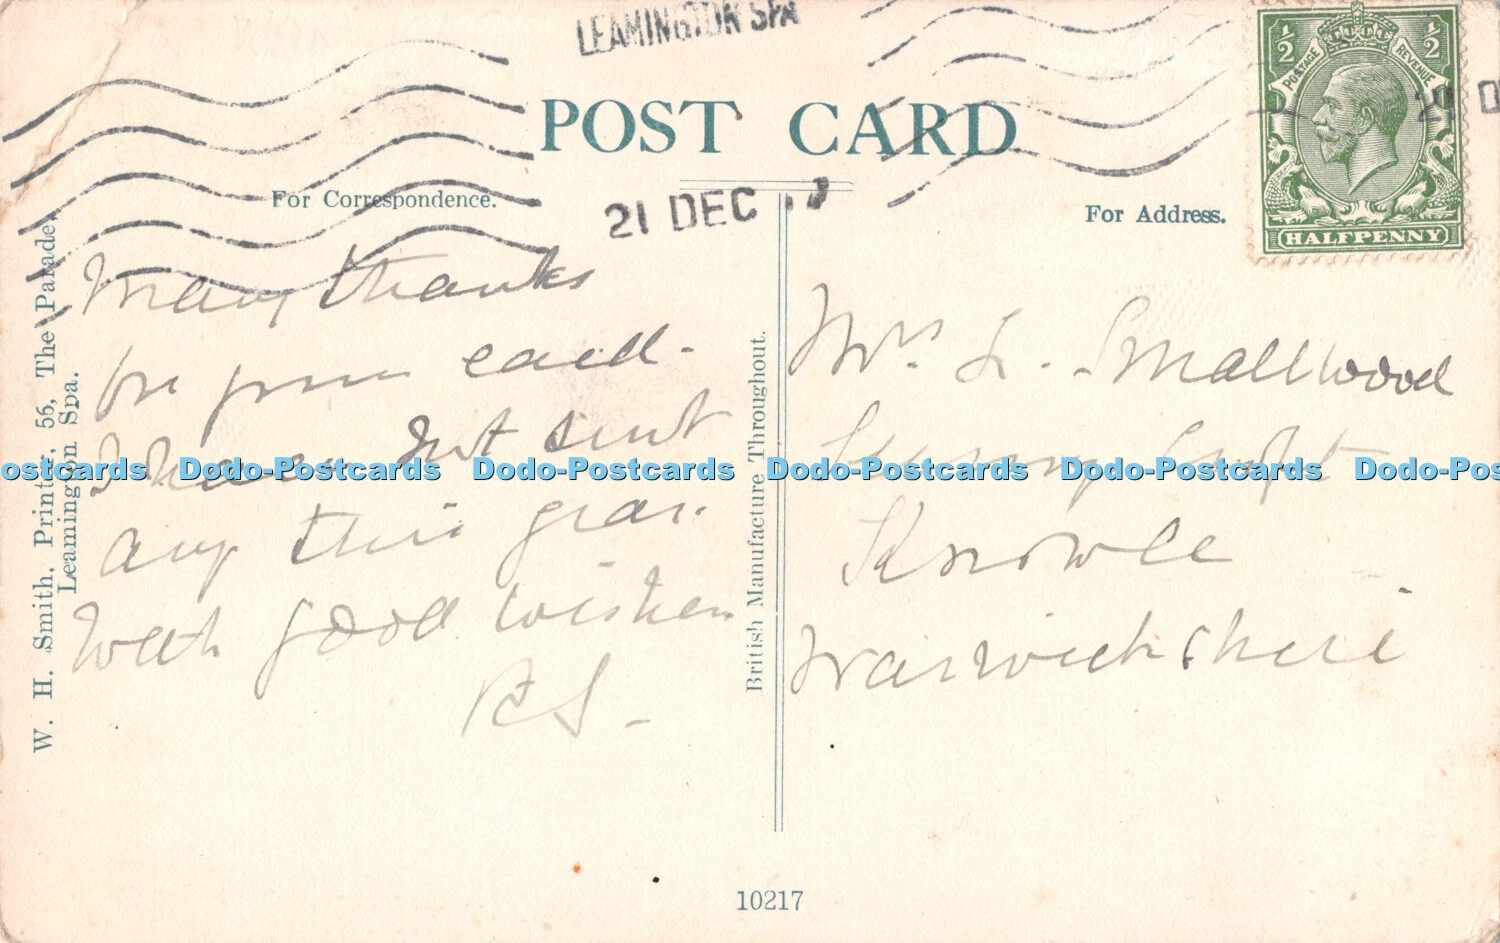 LEAMINGTON SPA
21 DEC
POST CARD
For Correspondence.
For Address.
½ POSTAGE REVENUE ½
HALFPENNY
W. H. Smith, Printer, 56, The Parade,
Leamington Spa.
British Manufacture Throughout.
Many thanks
for your card.
I have not sent
any this year.
With good wishes
Mrs. L. Smallwood
Croft
Knowle
Warwickshire
Dodo-Postcards Dodo-Postcards Dodo-Postcards Dodo-Postcards
10217